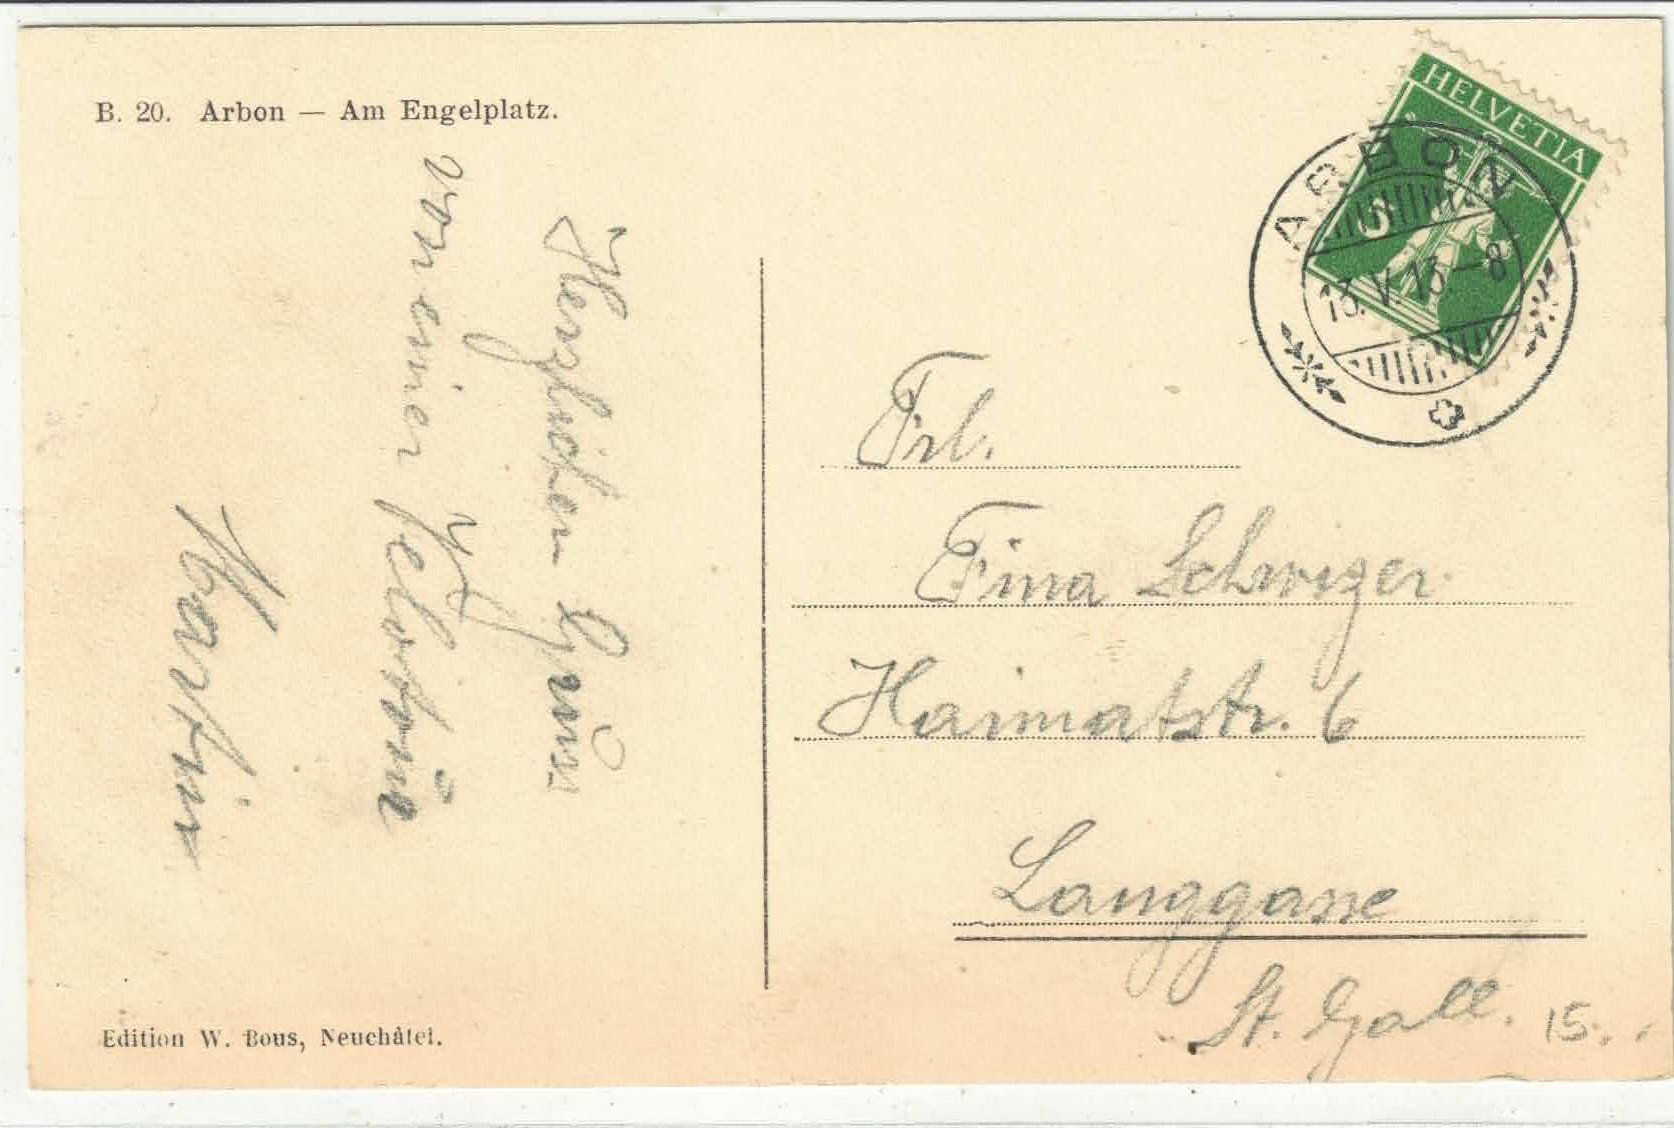 B. 20. Arbon — Am Engelplatz.
HELVETIA
5
ARBON
13.V.13—8
Herzlichen Gruss
von einer
Martin
Frl.
Fina Schwizer
Haimatstr. 6
Langgasse
St. Gall.
15.
Edition W. Bous, Neuchâtel.